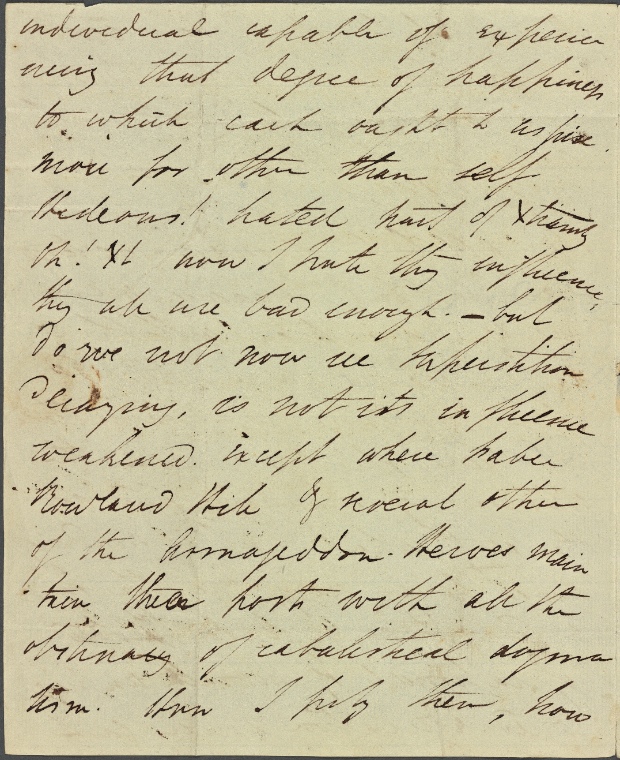 individual capable of experien
cing that degree of happiness
to which each ought to aspire.
more for other than self.
Hideous! hated trait of Xtianity
Oh! Xt how I hate thy influence,
they all are bad enough. — but
do we not now see Superstition
decaying, is not its influence
weakened. except where Faber
Rowland Hill & several other
of the Armageddon-Heroes main
tain their posts with all the
obstinacy of cabalistical dogma
tism. How I pity them, how